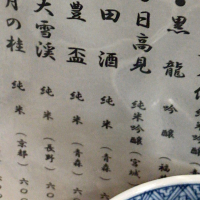 黒龍 吟醸（福
日高見 純米吟醸（宮城
田酒 純米（青森
豊盃 純米（青森）
大雪渓 純米（長野）六〇
月の桂 純米（京都）六〇